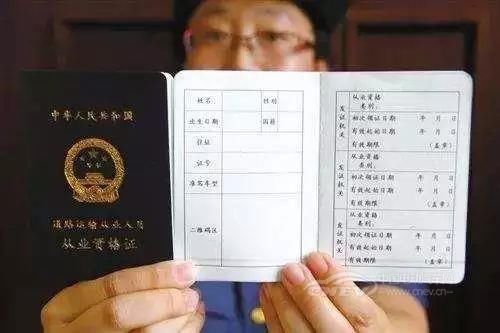 中华人民共和国
道路运输从业人员
从业资格证
姓名 性别
出生日期 国籍
住址
证号
准驾车型
二维码区
发证机关
从业资格
类别:
初次领证日期 年 月 日
有效起始日期 年 月 日
有效期限 (盖章)
发证机关
从业资格
类别:
初次领证日期 年 月 日
有效起始日期 年 月 日
有效期限 (盖章)
发证机关
从业资格
类别:
初次领证日期 年 月 日
有效起始日期 年 月 日
有效期限 (盖章)
www.cnev.cn